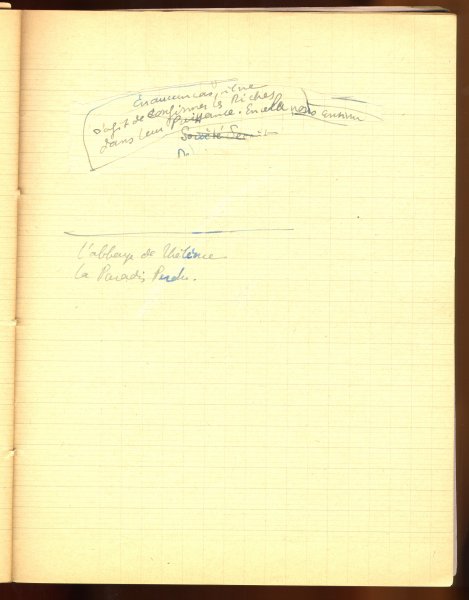 En aucun cas, il ne
s'agit de confirmer les Riches
dans leur puissance. En cela nous
Société Se
l'abbaye de Thélème
la Paradis Perdu.